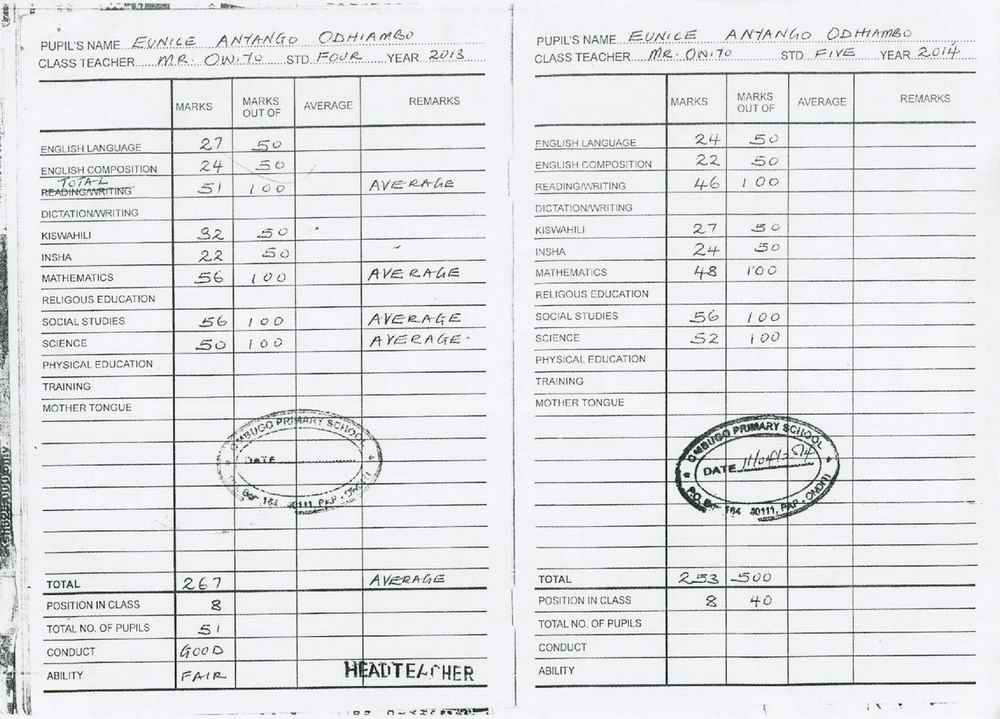 PUPIL'S NAME EUNICE ANYANGO ODHIAMBO
CLASS TEACHER MR. OWITO STD FOUR YEAR 2013
MARKS MARKS OUT OF AVERAGE REMARKS
ENGLISH LANGUAGE 27 50
ENGLISH COMPOSITION 24 50
TOTAL
READING/WRITING 51 100 AVERAGE
DICTATION/WRITING
KISWAHILI 32 50
INSHA 22 50
MATHEMATICS 56 100 AVERAGE
RELIGOUS EDUCATION
SOCIAL STUDIES 56 100 AVERAGE
SCIENCE 50 100 AVERAGE
PHYSICAL EDUCATION
TRAINING
MOTHER TONGUE
OMBUGO PRIMARY SCHOOL
DATE
164 40111, PAP - ONDITI
TOTAL 267 AVERAGE
POSITION IN CLASS 8
TOTAL NO. OF PUPILS 51
CONDUCT GOOD
ABILITY FAIR
HEADTEACHER
PUPIL'S NAME EUNICE ANYANGO ODHIAMBO
CLASS TEACHER MR. OWITO STD FIVE YEAR 2014
MARKS MARKS OUT OF AVERAGE REMARKS
ENGLISH LANGUAGE 24 50
ENGLISH COMPOSITION 22 50
READING/WRITING 46 100
DICTATION/WRITING
KISWAHILI 27 50
INSHA 24 50
MATHEMATICS 48 100
RELIGOUS EDUCATION
SOCIAL STUDIES 56 100
SCIENCE 52 100
PHYSICAL EDUCATION
TRAINING
MOTHER TONGUE
OMBUGO PRIMARY SCHOOL
DATE
164 40111, PAP - ONDITI
TOTAL 253 500
POSITION IN CLASS 8 40
TOTAL NO. OF PUPILS
CONDUCT
ABILITY